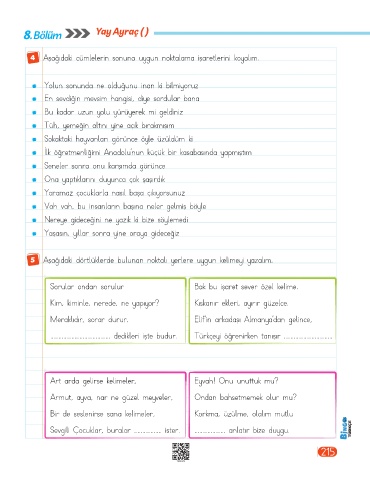 8. Bölüm Yay Ayraç ( )
4 Aşağıdaki cümlelerin sonuna uygun noktalama işaretlerini koyalım.
Yolun sonunda ne olduğunu inan ki bilmiyoruz
En sevdiğin mevsim hangisi, diye sordular bana
Bu kadar uzun yolu yürüyerek mi geldiniz
Tüh, yemeğin altını yine açık bırakmışım
Sokaktaki hayvanları görünce öyle üzülüdüm ki
İlk öğretmenliğimi Anadolu'nun küçük bir kasabasında yapmıştım
Seneler sonra onu karşımda görünce
Ona yaptıklarını duyunca çok şaşırdık
Yaramaz çocuklarla nasıl başa çıkıyorsunuz
Vah vah, bu insanların başına neler gelmiş böyle
Nereye gideceğini ne yazık ki bize söylemedi
Yaşasın, yıllar sonra yine oraya gideceğiz
5 Aşağıdaki dörtlüklerde bulunan noktalı yerlere uygun kelimeyi yazalım.
Sorular ondan sorulur.
Kim, kiminle, nerede, ne yapıyor?
Meraklıdır, sorar durur.
.............................. dedikleri işte budur.
Bak bu işaret sever özel kelime.
Kıskanır ekleri, ayırır güzelce.
Elif'in arkadaşı Almanya'dan gelince,
Türkçeyi öğrenirken tanışır ..........................
Art arda gelirse kelimeler,
Armut, ayva, nar ne güzel meyveler.
Bir de seslenirse sana kelimeler,
Sevgili Çocuklar, buralar .............. ister.
Eyvah! Onu unuttuk mu?
Ondan bahsetmemek olur mu?
Korkma, üzülme, olalım mutlu
................ anlatır bize duygu.
215